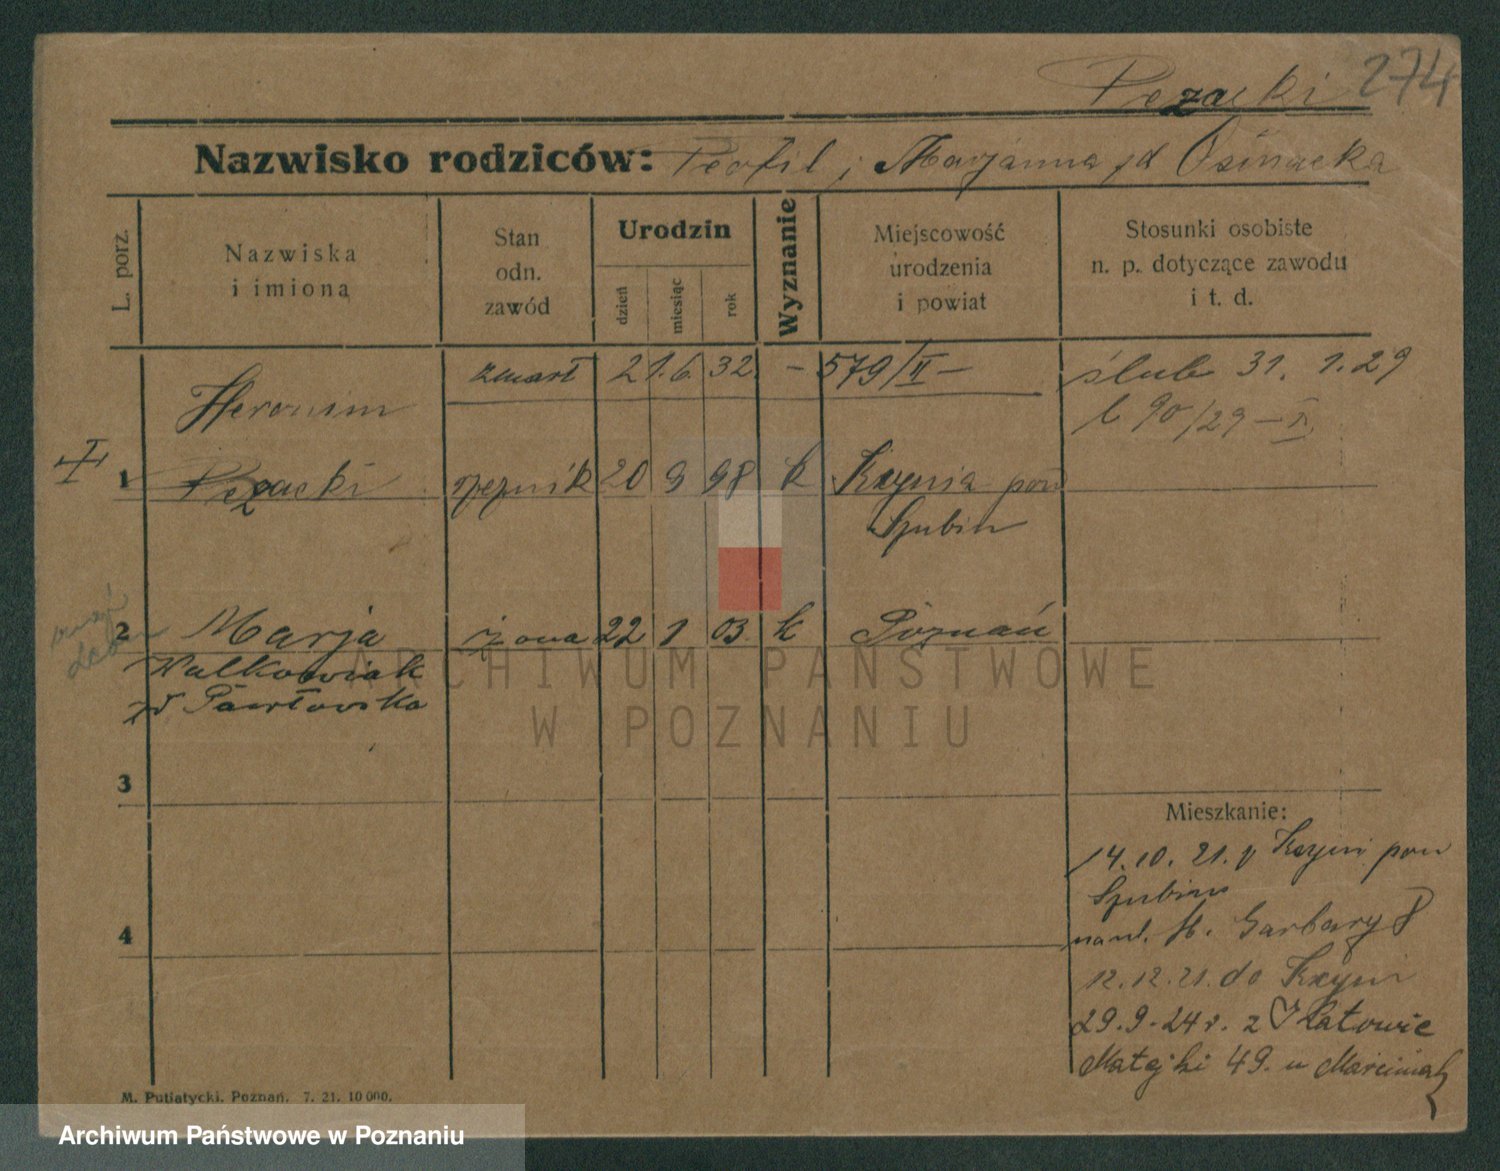 Pezacki 274
Nazwisko rodziców: Teofil i Marjanna zd Osinacka
L. porz.
Nazwiska
i imiona
Stan
odn.
zawód
Urodzin
dzień
miesiąc
rok
Wyznanie
Miejscowość
urodzenia
i powiat
Stosunki osobiste
n. p. dotyczące zawodu
i t. d.
zmarł 21.6.32. – 579/II –
ślub 31. 1. 29
l 90/29 – II
Heronim
1 Pezacki rzeźnik 20 9 98 k Kcynia pow
Szubin
2 Marja żona 22 1 03 k Poznań
Walkowiak
zd Pawłowska
3
4
Mieszkanie:
14.10.21. z Kcyni pow
Szubin
na ul. W. Garbary 8
12.12.21. do Kcyni
29.9.24 r. z Katowic
Matejki 49. u Marciniak
M. Putiatycki. Poznań. 7. 21. 10 000.
ARCHIWUM PAŃSTWOWE
W POZNANIU
Archiwum Państwowe w Poznaniu